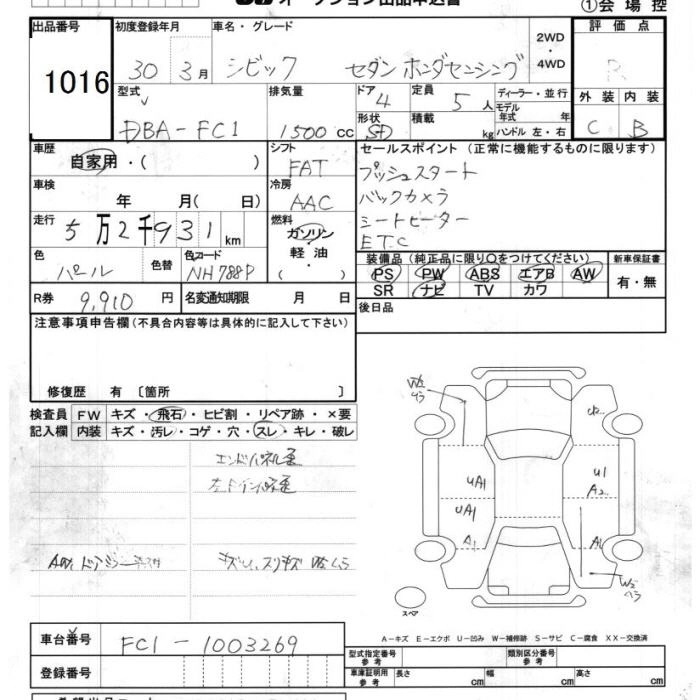 オークション出品申込書
①会場控
出品番号 初度登録年月 車名・グレード 2WD・4WD 評価点
1016 30 3月 シビック セダン ホンダセンシング R
型式 排気量 ドア 4 定員 5人 ディーラー・並行 外装 内装
モデル年式 年
DBA-FC1 1500cc 形状 SD 積載 kg ハンドル 左・右 C B
車歴 シフト セールスポイント (正常に機能するものに限ります)
自家用・( ) FAT プッシュスタート
車検 冷房 バックカメラ
年 月( 日) AAC シートヒーター
走行 燃料 ETC
5万2千931km ガソリン・軽油・( )
色 色替 色コード 装備品 (純正品に限り○をつけてください) 新車保証書
パール NH788P PS PW ABS エアB AW 有・無
SR ナビ TV カワ
R券 9,910円 名変通知期限 月 日 後日品
注意事項申告欄 (不具合内容等は具体的に記入して下さい)
修復歴 有 〔箇所 〕
検査員 FW キズ・飛石・ヒビ割・リペア跡・×要
記入欄 内装 キズ・汚レ・コゲ・穴・スレ・キレ・破レ
W2
UA1
UA1
A1
U1
A2
A1
W2
スペア
A-キズ E-エクボ U-凹み W-補修跡 S-サビ C-腐食 XX-交換済
車台番号 FC1-1003269
型式指定番号 参考 類別区分番号 参考
登録番号
車庫証明用 参考 長さ cm 幅 cm 高さ cm